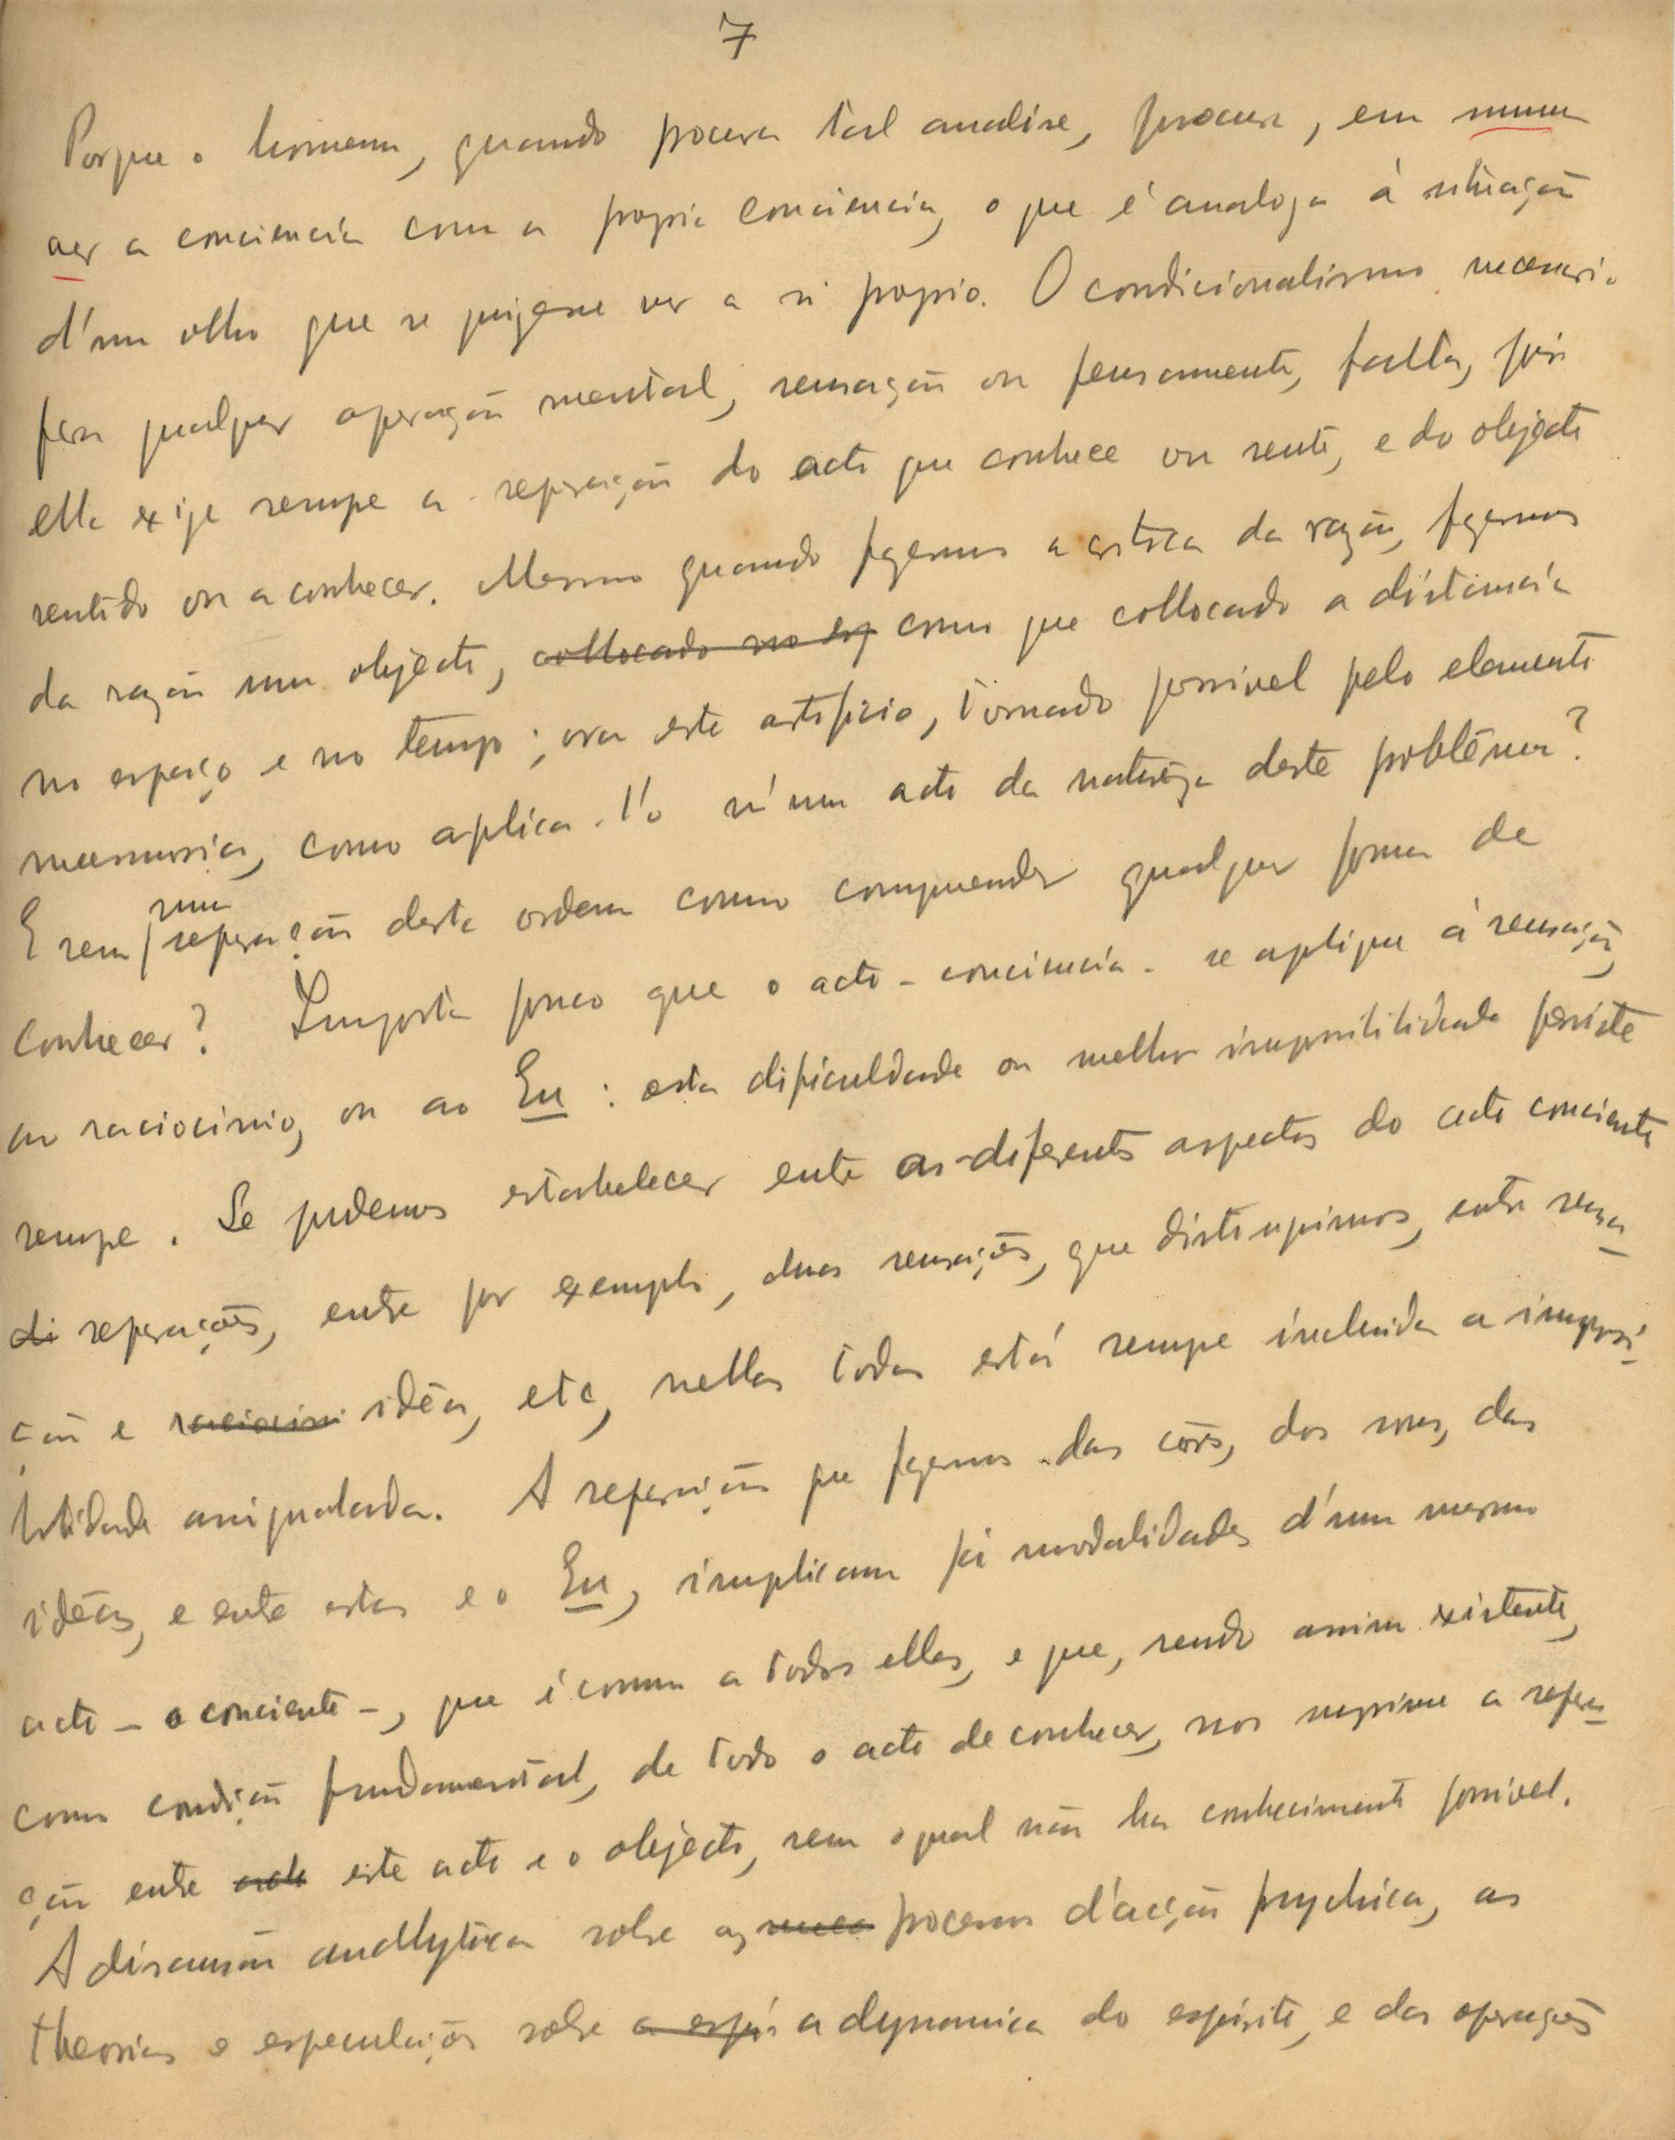 7
Porque o homem, quando procura tal analise, procura, em summa
ver a conciencia com a propria conciencia, o que é analogo á situação
d'um olho que se quizesse ver a si proprio. O condicionalismo necessario
para qualquer operação mental, sensação ou pensamento, falta, pois
ella exije sempre a separação do acto que conhece ou sente, e do objecto
sentido ou a conhecer. Mesmo quando fazemos a critica da razão, fazemos
da razão um objecto, collocado no esp como que collocado a distancia
no espaço e no tempo; ora este artificio, tornado possivel pelo elemento
memoria, como aplica-l'o n'um acto da natureza deste problêma?
E sem uma separação desta ordem como comprehender qualquer forma de
conhecer? Importa pouco que o acto-conciencia- se aplique á sensação,
ao raciocinio, ou ao Eu: esta dificuldade ou melhor impossibilidade persiste
sempre. Se podemos estabelecer entre os diferentes aspectos do acto conciente
di separações, entre por exemplo, duas sensações, que distinguimos, entre sensa-
ção e raciocini idêa, etc, nellas todas está sempre incluida a impossi-
bilidade assignalada. A separação que fazemos das côres, dos sons, das
idêas, e entre estas e o Eu, implicam já modalidades d'um mesmo
acto - o conciente -, que é comum a todas ellas, e que, sendo assim existente,
como condição fundamental, de todo o acto de conhecer, nos suprime a separa-
ção entre acto este acto e o objecto, sem o qual não ha conhecimento possivel.
A discussão anallytica sobre os processos d'acção psychica, as
theorias e especulações sobre a espi a dynamica do espirito, e das operações